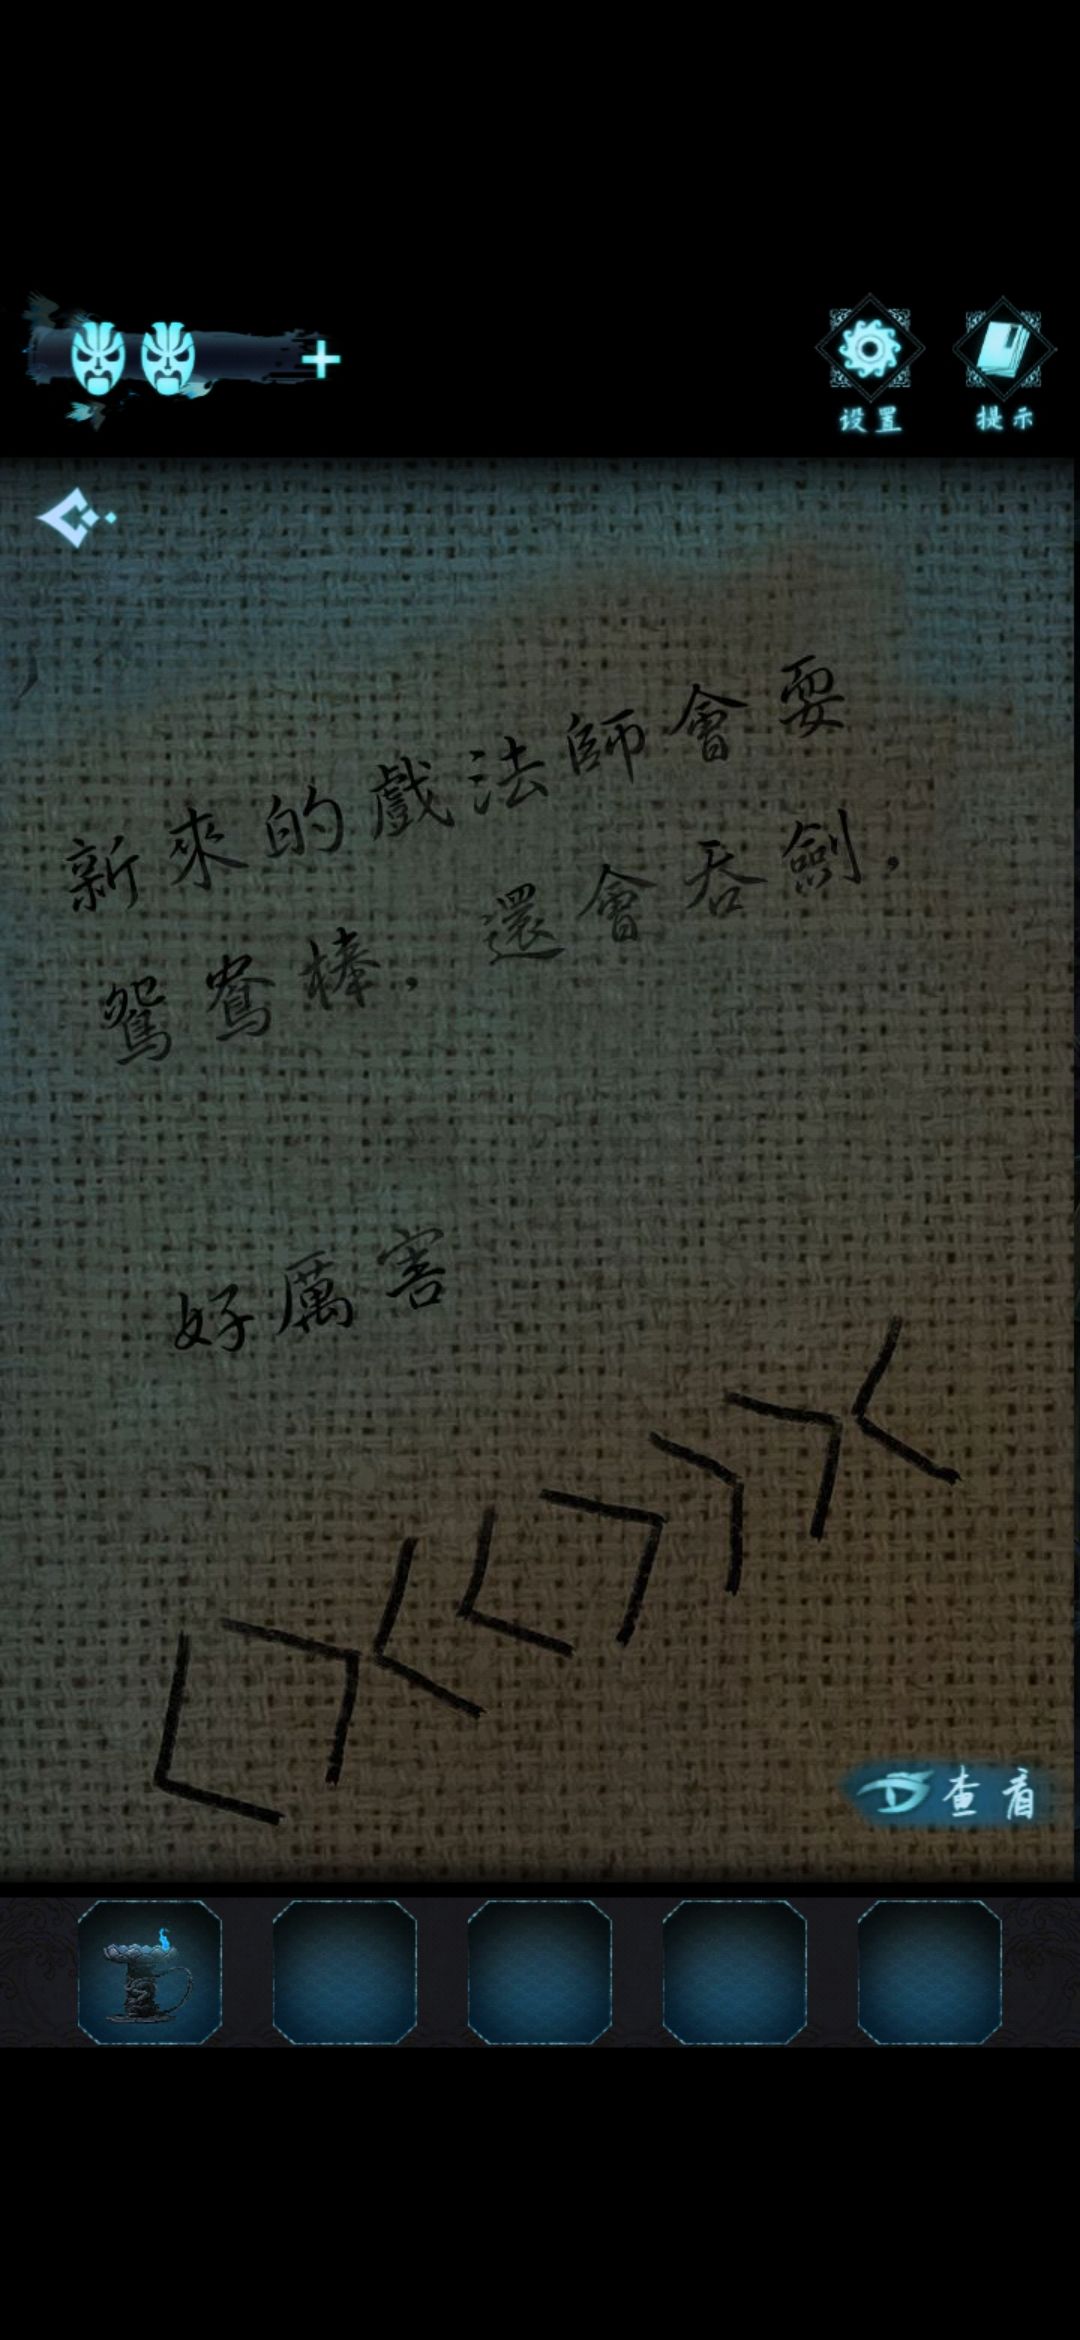 设置
提示
新來的戲法師會耍
鴛鴦棒,還會吞劍,
好厲害
查看